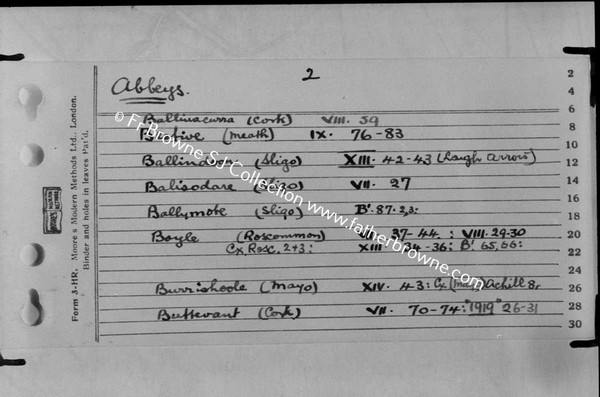 2
Abbeys.
Ballinacurra (Cork) VIII. 59
Bective (Meath) IX. 76-83
Ballindoon (Sligo) XIII. 42-43 (Lough Arrow)
Balisodare (Sligo) VII. 27
Ballymote (Sligo) B'. 87. 2,3:
Boyle (Roscommon) VII. 37-44 : VIII. 29-30
Cx, Rosc. 2+3: XIII. 34-36: B' 65, 66:
Burrishoole (Mayo) XIV. 43: Cx (Mayo) Achill 8,
Buttevant (Cork) VII. 70-74: "1919" 26-31
Form 3-HR. Moore's Modern Methods Ltd., London.
Binder and holes in leaves Pat'd.
2
4
6
8
10
12
14
16
18
20
22
24
26
28
30
© Fr Browne SJ Collection www.fatherbrowne.com